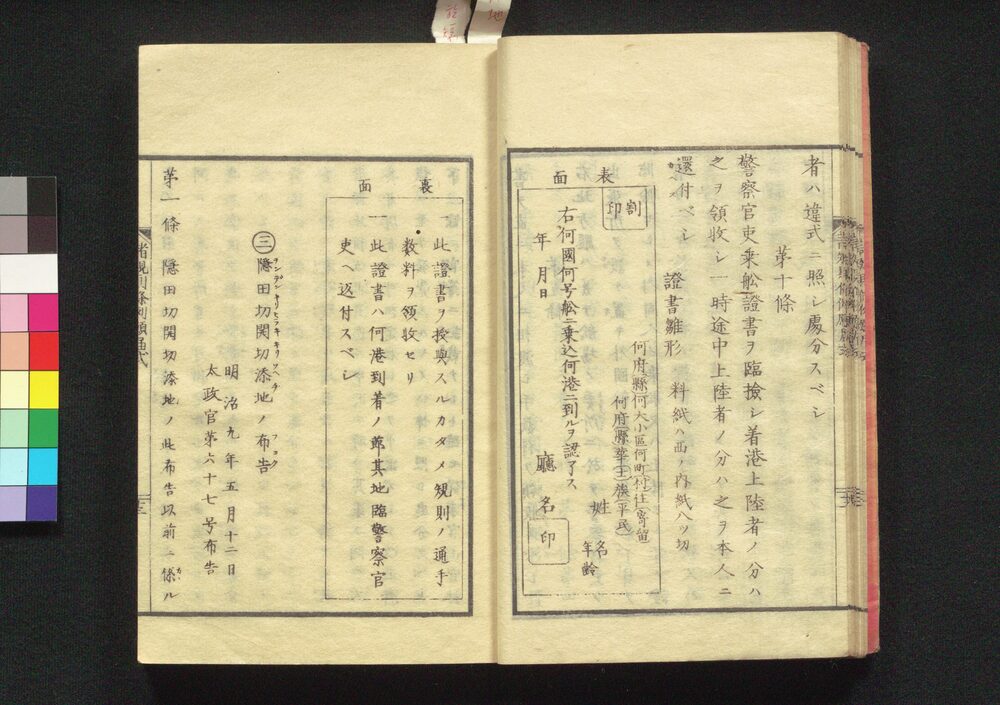 者ハ違式ニ照シ處分スベシ
第十條
警察官吏乗舩證書ヲ臨撿シ着港上陸者ノ分ハ
之ヲ領收シ一時途中上陸者ノ分ハ之ヲ本人ニ
還付ベシ
證書雛形 料紙ハ西ノ内紙八ツ切
表面
割印
何府縣何大小區何町村住寄留
何府縣華士族平民
姓名
年齢
右何國何号舩ニ乗込何港ニ到ルヲ認了ス
年月日
廳名印
裏面
一此證書ヲ授與スルカタメ規則ノ通手
数料ヲ領收セリ
一此證書ハ何港到着ノ節其地臨警察官
吏ヘ返付スベシ
三隠田切関切添地ノ布告
ヲンデンキリヒラキキリソヘチ フコク
明治九年五月十二日
太政官第六十七号布告
第一條 隠田切関切添地ノ此布告以前ニ係ル
諸規則條例類函弌